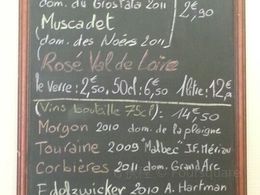 dom. du Grostala 2011
2€,90
Muscadet
(dom. des Noërs 2011)
Rosé Val de Loire
le verre: 2€,50, 50cl: 6€,50 1 litre: 12€,
(Vins bouteille 75cl): 14€,50
Morgon 2010 dom. de la plaigne
Touraine 2009 "Malbec" J.F. Mérieau
Corbières 2011 dom. Grand Arc
Edelzwicker 2010 A. Hartman